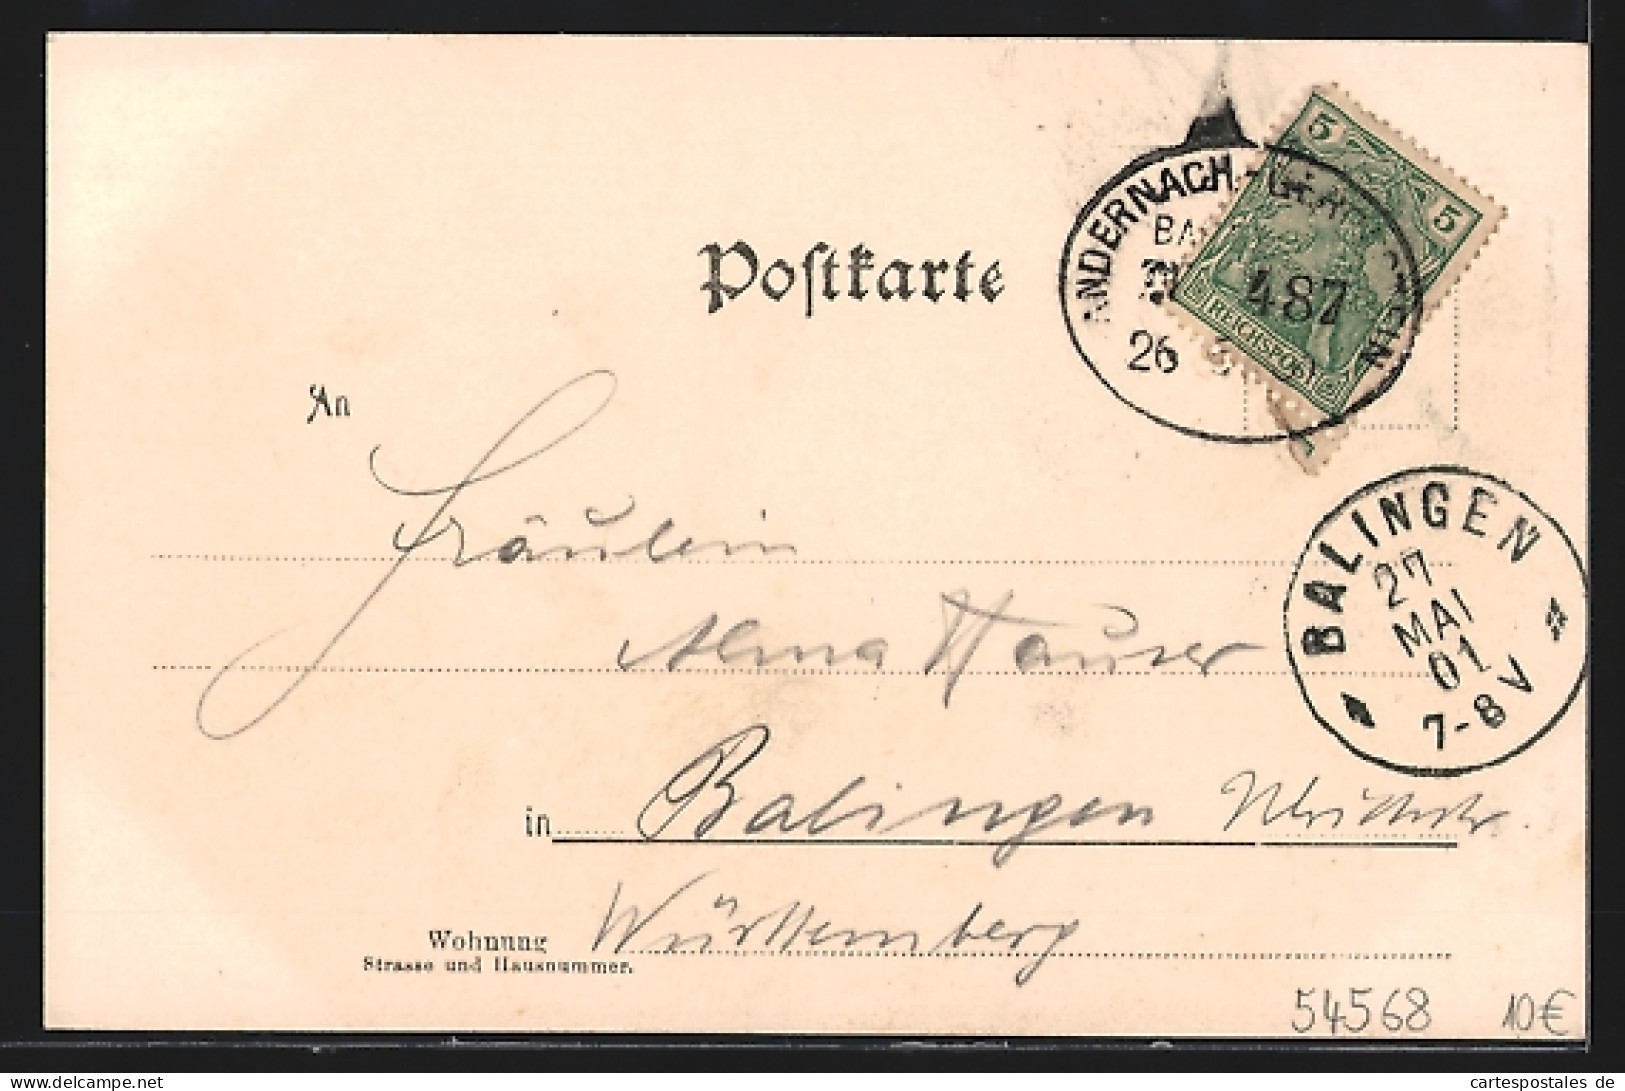 Postkarte
ANDERNACH - GEROLSTEIN
487
26
5
5
REICHSPOST
An
BALINGEN
27
MAI
01
7-8 V
Fräulein
Alma Hauser
in Balingen
Württemberg
Wohnung
Strasse und Hausnummer.
54568 10€
cartespostales de